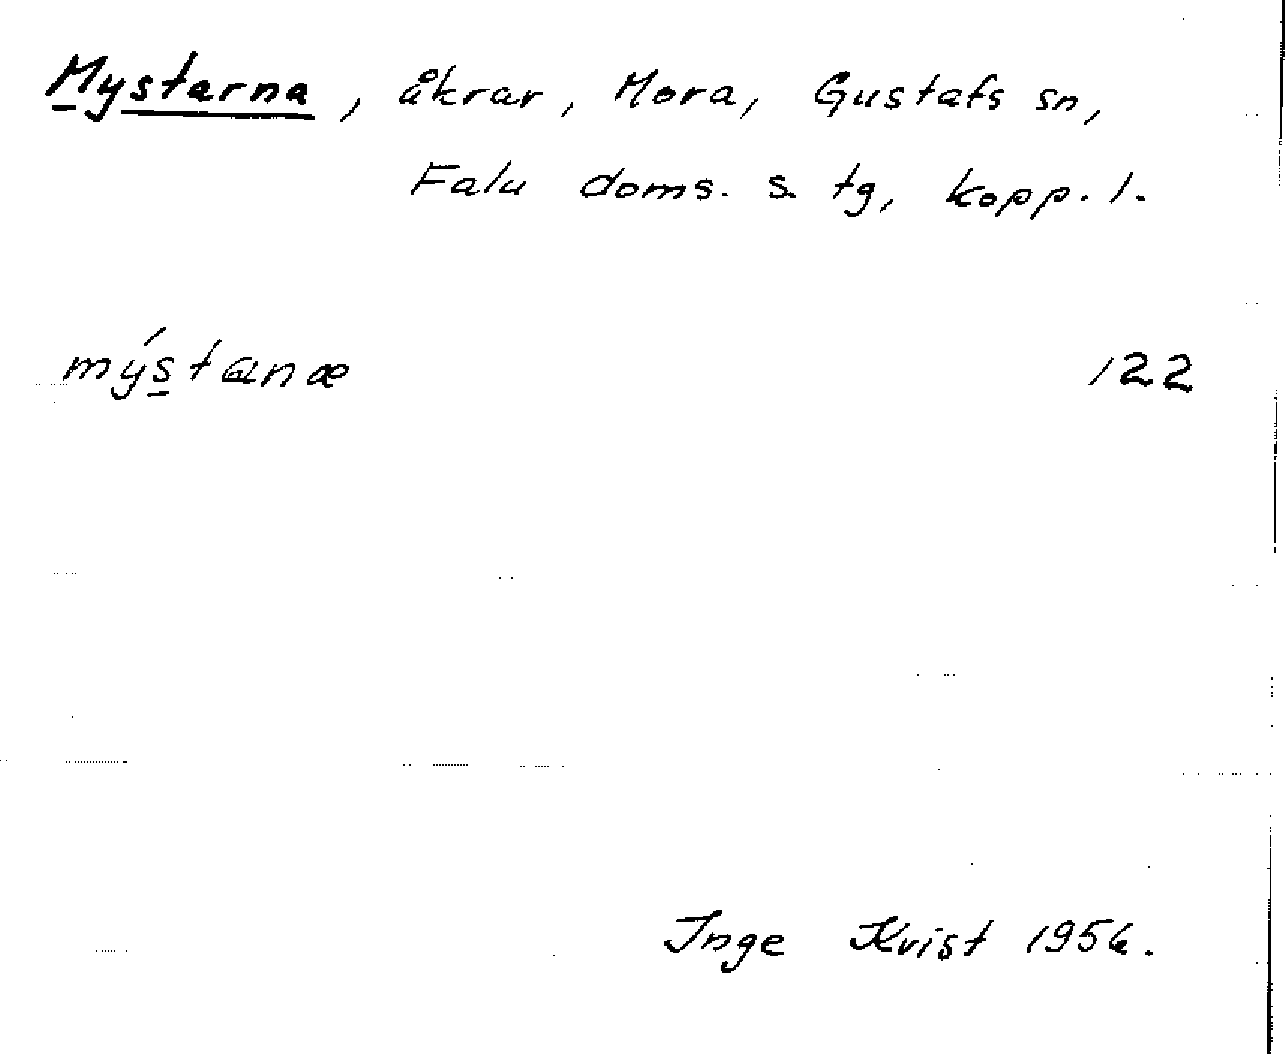 Mystarna, åkrar, Mora, Gustafs sn,
Falu doms. s. tg, Kopp. l.
mýstanæ 122
Inge Kvist 1956.